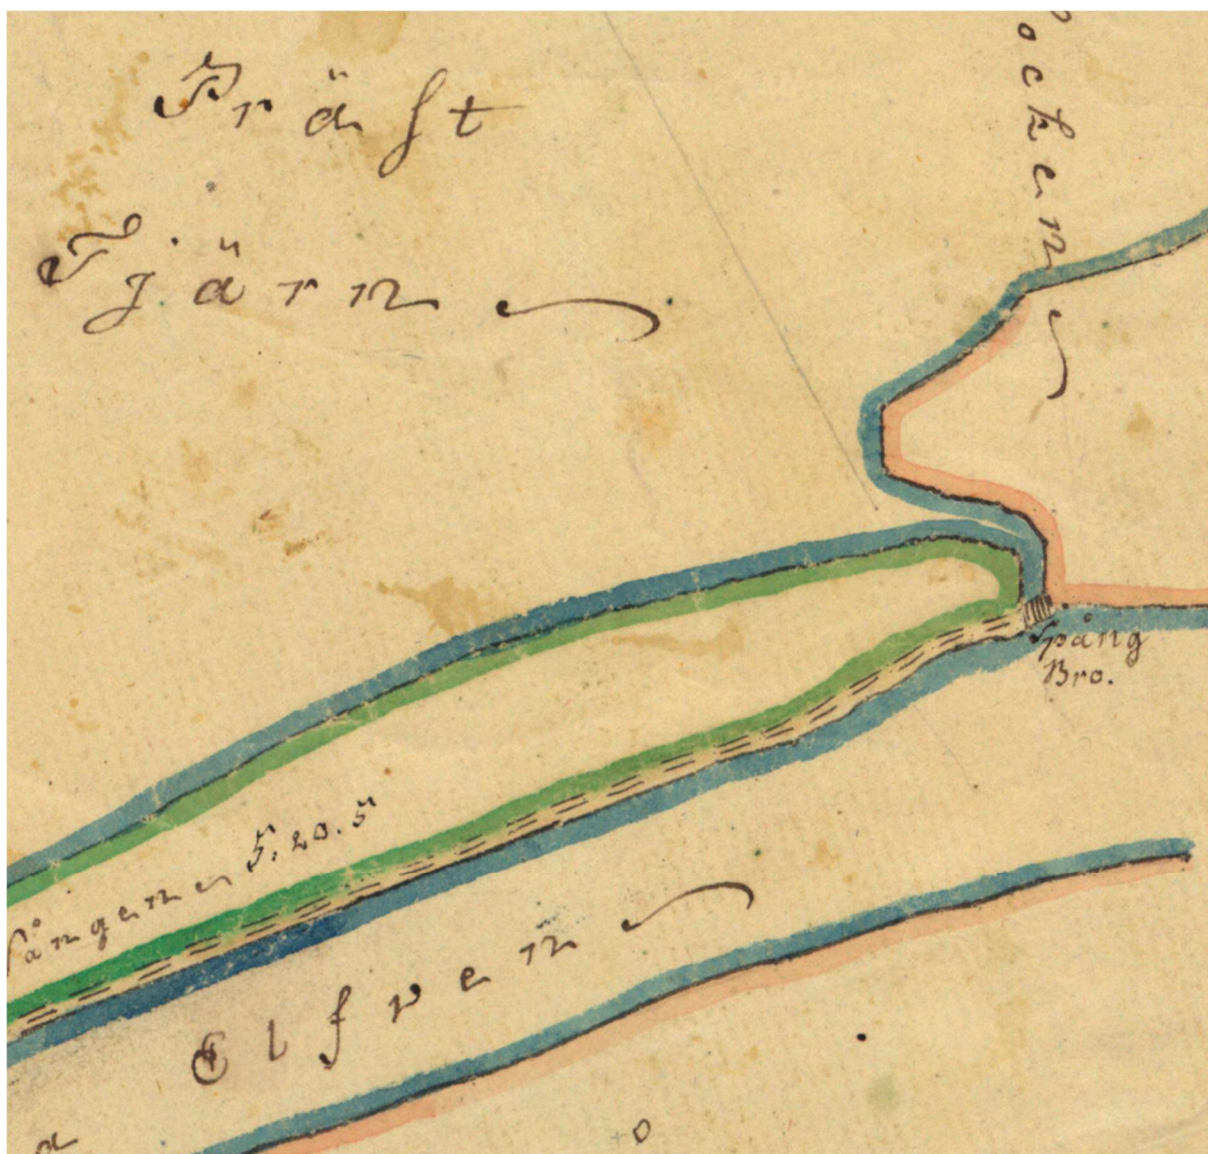 Präst
Tjärn
ocken
Spång
Bro.
ångerne 5.20.5
Elfven